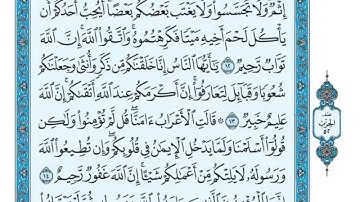 إِثْمٌ وَلَا تَجَسَّسُوا۟ وَلَا يَغْتَب بَّعْضُكُم بَعْضًا أَيُحِبُّ أَحَدُكُمْ أَن
يَأْكُلَ لَحْمَ أَخِيهِ مَيْتًا فَكَرِهْتُمُوهُ وَٱتَّقُوا۟ ٱللَّهَ إِنَّ ٱللَّهَ
تَوَّابٌ رَّحِيمٌ ١٢ يَـٰٓأَيُّهَا ٱلنَّاسُ إِنَّا خَلَقْنَـٰكُم مِّن ذَكَرٍ وَأُنثَىٰ وَجَعَلْنَـٰكُمْ
شُعُوبًا وَقَبَآئِلَ لِتَعَارَفُوٓا۟ إِنَّ أَكْرَمَكُمْ عِندَ ٱللَّهِ أَتْقَىٰكُمْ إِنَّ ٱللَّهَ
عَلِيمٌ خَبِيرٌ ١٣ قَالَتِ ٱلْأَعْرَابُ ءَامَنَّا قُل لَّمْ تُؤْمِنُوا۟ وَلَـٰكِن
قُولُوٓا۟ أَسْلَمْنَا وَلَمَّا يَدْخُلِ ٱلْإِيمَـٰنُ فِى قُلُوبِكُمْ وَإِن تُطِيعُوا۟ ٱللَّهَ
وَرَسُولَهُۥ لَا يَلِتْكُم مِّنْ أَعْمَـٰلِكُمْ شَيْـًٔا إِنَّ ٱللَّهَ غَفُورٌ رَّحِيمٌ ١٤